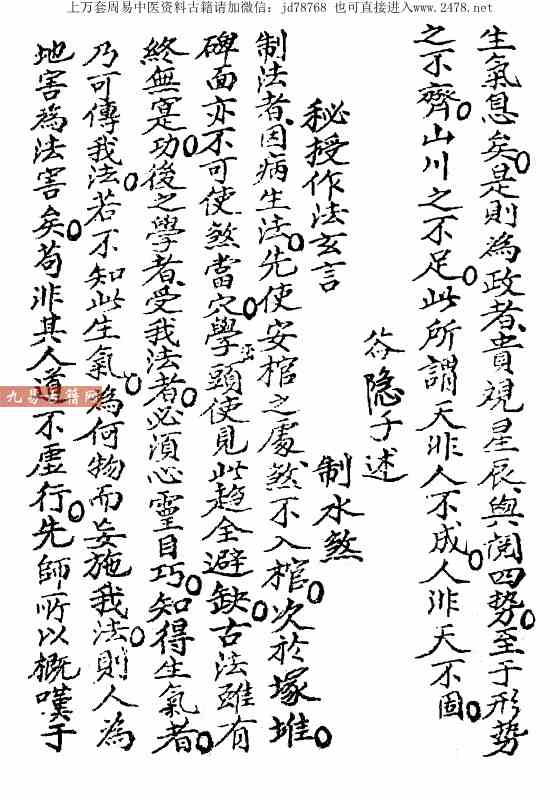 上万套周易中医资料古籍请加微信：jd78768 也可直接进入www.2478.net
生氣息矣是則為政者貴視星辰與閲四勢至于形勢
之不齊山川之不足此所謂天非人不成人非天不固
谷隐子述
秘授作法玄言 制水煞
制法者因病生法先使安棺之處煞不入棺次於塚堆
碑面亦不可使煞當穴學頭使見此趨全避缺古法雖有
終無寔功後之學者受我法者必須心靈目巧知得生氣者
乃可傳我法若不知此生氣為何物而妄施我法則人為
地害為法害矣苟非其人道不虛行先師所以概嘆于
九易古籍网